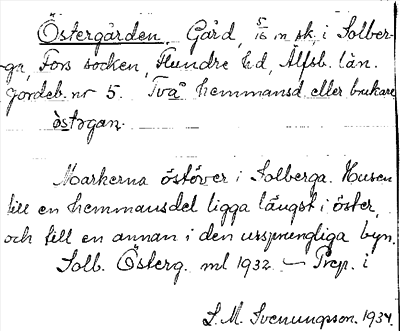 Östergården. Gård, 5/16 m sk. i Solber-
ga, Fors socken, Flundre hd, Älfsb. län.
Jordeb. nr 5. Två hemmansd. eller brukare
östogan.
Markerna östöver i Solberga. Husen
till en hemmansdel ligga längst i öster,
och till en annan i den ursprungliga byn.
Solb. Österg. ml 1932 – Prep. i
S. M. Svenungsson. 1934.